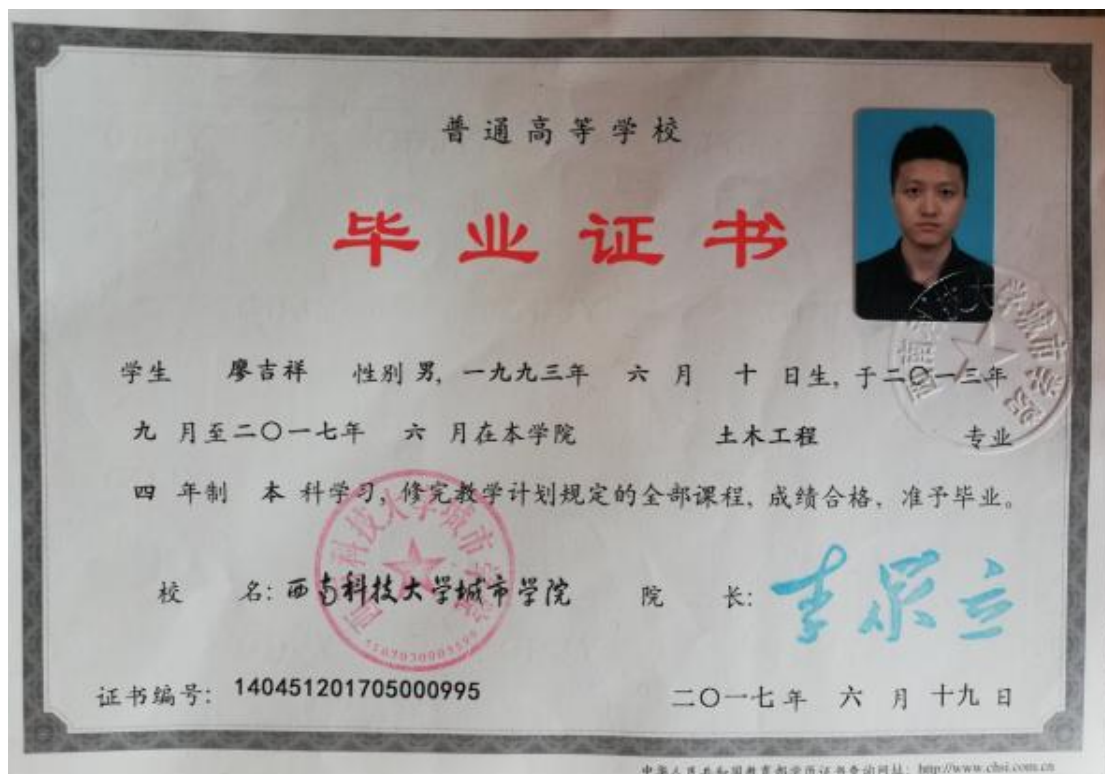 普通高等学校
毕业证书
学生 廖吉祥 性别 男, 一九九三年 六 月 十 日生, 于二〇一三年
九 月至二〇一七年 六 月在本学院 土木工程 专业
四 年制 本 科学习, 修完教学计划规定的全部课程, 成绩合格, 准予毕业。
校 名: 西南科技大学城市学院 院 长:
证书编号: 140451201705000995 二〇一七年 六 月 十九 日
中华人民共和国教育部学历证书查询网址: http://www.chsi.com.cn
西南科技大学城市学院
西南科技大学城市学院